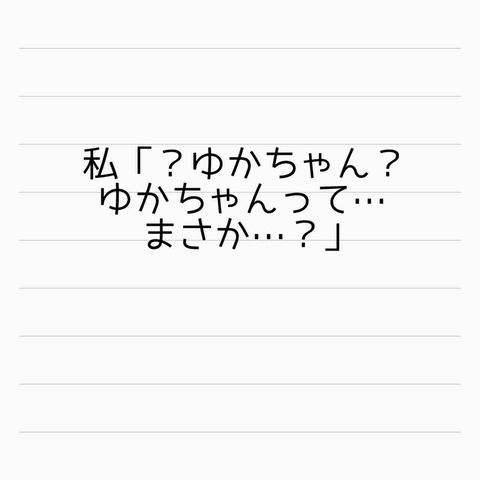 私「？ゆかちゃん？
ゆかちゃんって…
まさか…？」